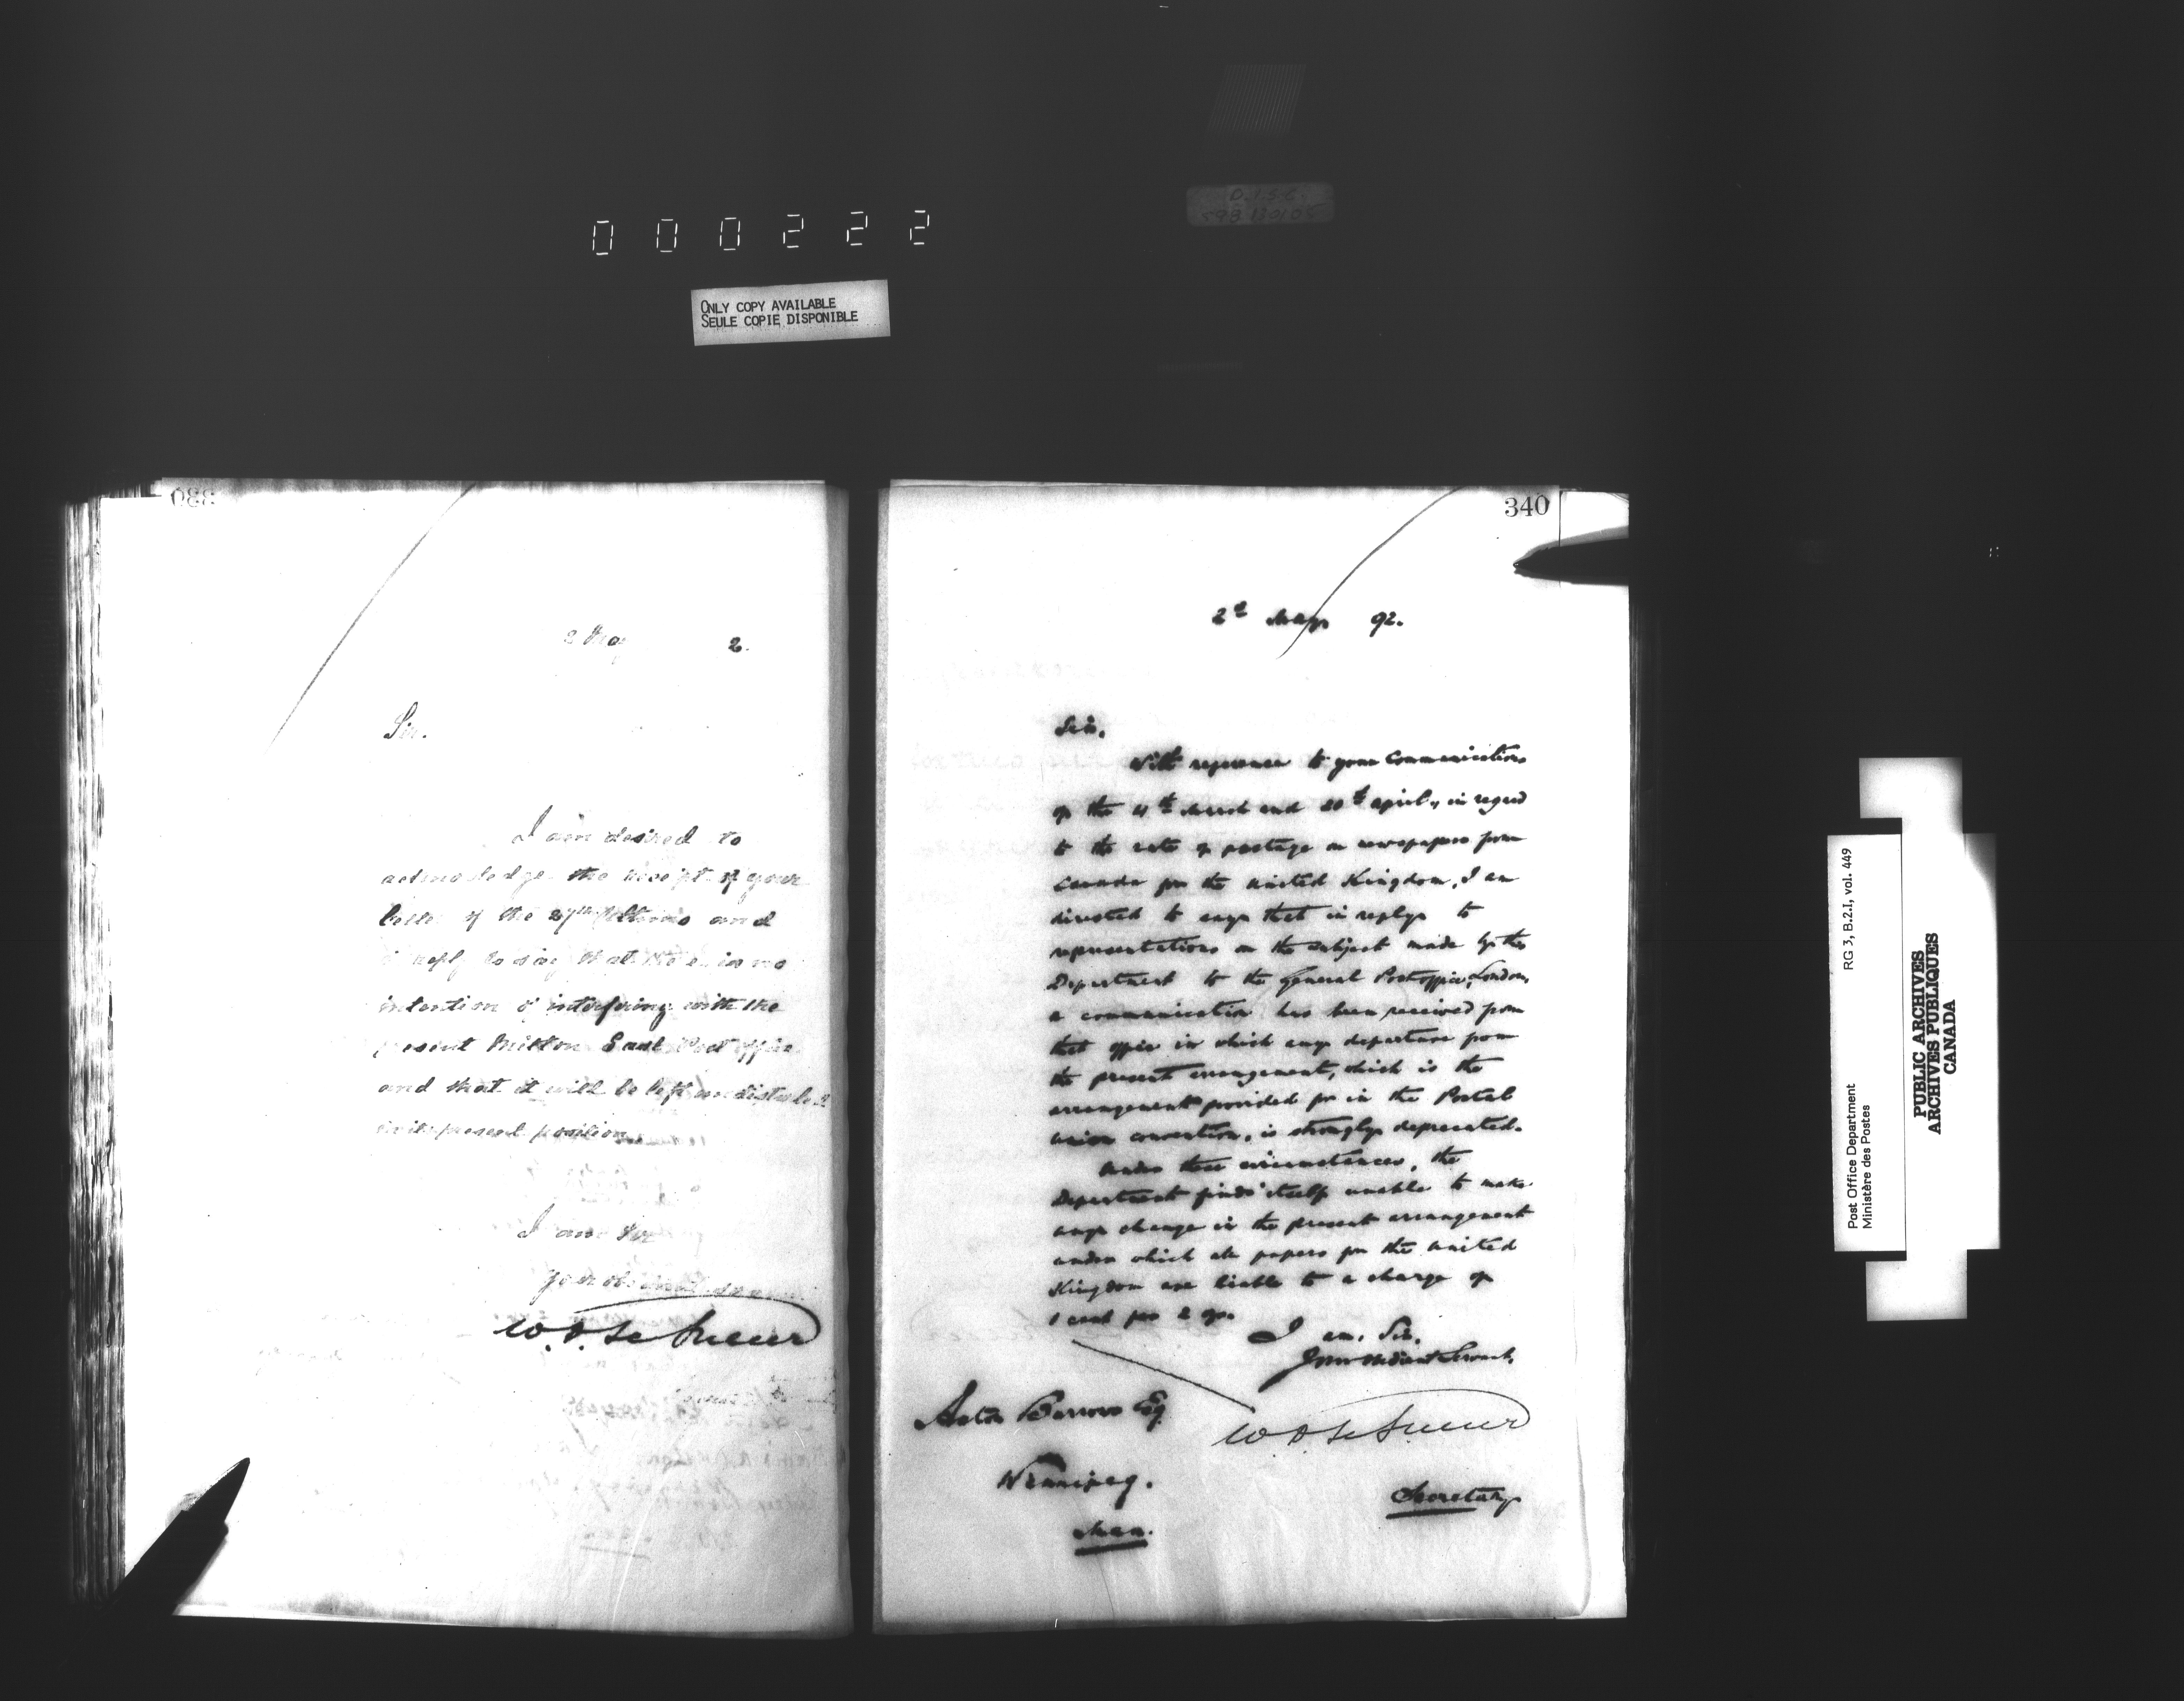 000222
ONLY COPY AVAILABLE
SEULE COPIE DISPONIBLE
2 May 2.
Sir.
I am desired to
acknowledge the receipt of your
letter of the 27th Ultimo and
reply to say that there is no
intention of interfering with the
present Milton East Post office
and that it will be left undisturbed
in its present position
I am Sir
Your obedient servant
W. D. Le Sueur
340
2d May 92.
Sir,
With reference to your Communications
of the 4th March and 20th April, in regard
to the rate of postage on newspapers from
Canada for the United Kingdom, I am
directed to say that in reply to
representations on the subject made by this
Department to the General Post office, London,
a communication has been received from
that office in which any departure from
the present arrangement, which is the
arrangement provided for in the Postal
Union Convention, is strongly deprecated.
Under these circumstances, the
Department finds itself unable to make
any change in the present arrangement
under which all papers for the United
Kingdom are liable to a charge of
1 cent per 2 ozs.
I am, Sir,
Your obedient Servant,
W D Le Sueur
Secretary
Acton Burrows Esq
Winnipeg.
Man.
Post Office Department
Ministère des Postes
RG 3, B.2.I, vol. 449
PUBLIC ARCHIVES
ARCHIVES PUBLIQUES
CANADA